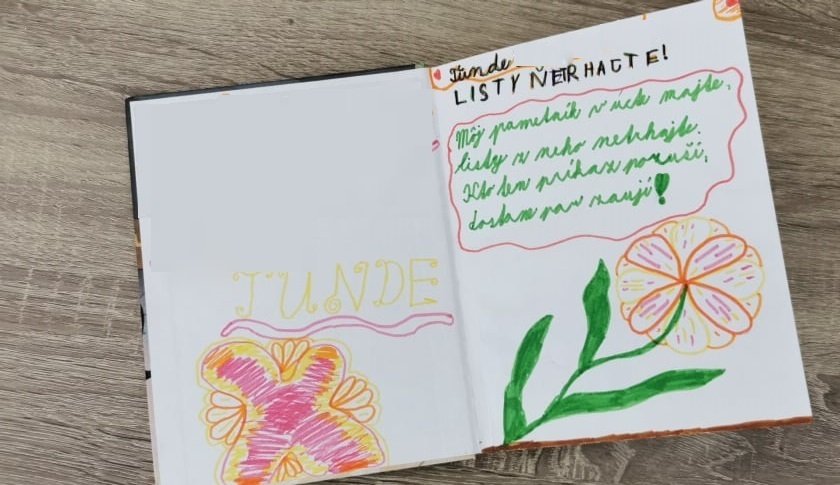 TUNDE
Tünde
LISTY NETRHAJTE!
Môj pametník v úcte majte,
listy z neho netrhajte.
Kto ten príkaz poruší,
dostane par zauší!